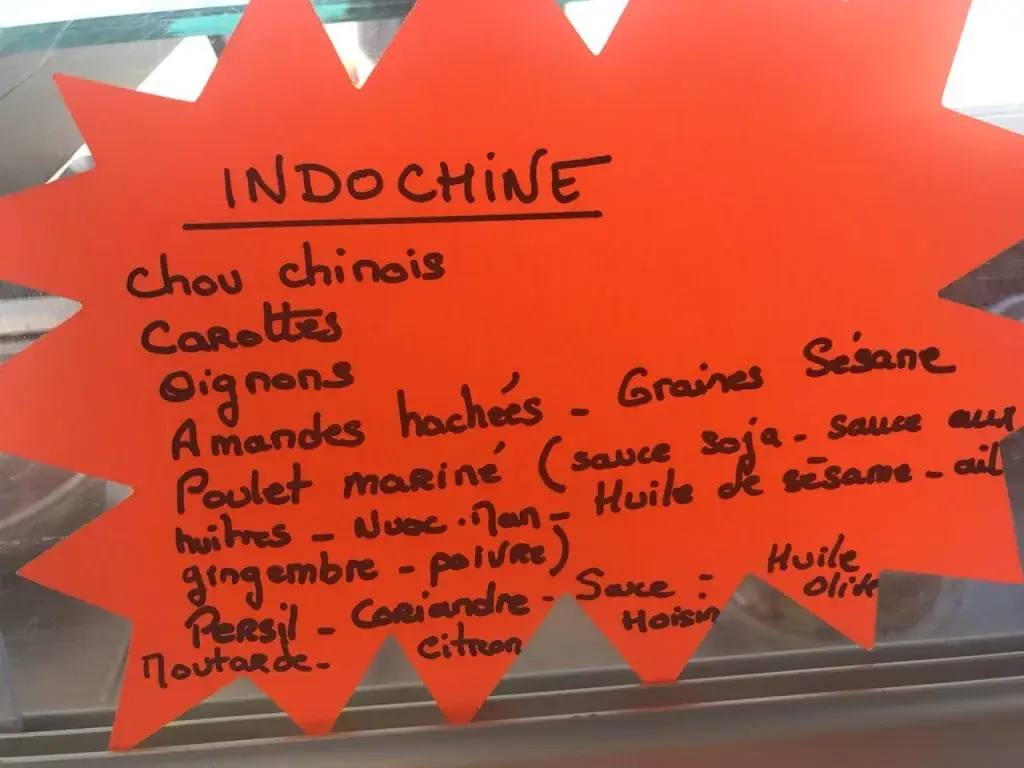 INDOCHINE
Chou chinois
Carottes
Oignons
Amandes hachées - Graines Sésane
Poulet mariné (sauce soja - sauce aux
huitres - Nuoc.Man - Huile de sésame - ail
gingembre - poivre)
Persil - Coriandre - Sauce : Huile Olive
Moutarde - Citron Hoisin